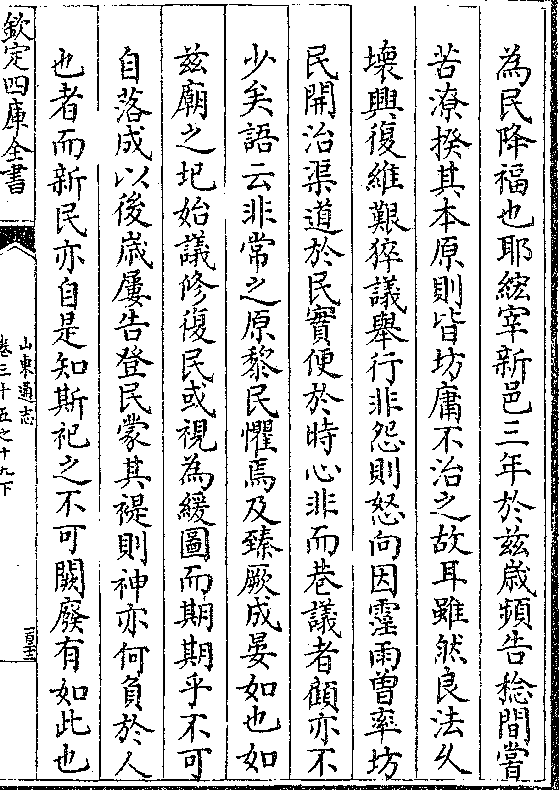 為民降福也耶綋宰新邑三年於兹歳頻告稔間嘗
苦潦揆其本原則皆坊庸不治之故耳雖然良法久
壊興復維艱猝議舉行非怨則怒向因霪雨曽率坊
民開治渠道於民實便於時心非而巷議者顧亦不
少矣語云非常之原黎民懼焉及臻厥成晏如也如
兹廟之圮始議修復民或視為緩圖而期期乎不可
自落成以後歳屢告登民蒙其禔則神亦何負於人
也者而新民亦自是知斯祀之不可闕廢有如此也
欽定四庫全書
山東通志
卷三十五之十九下